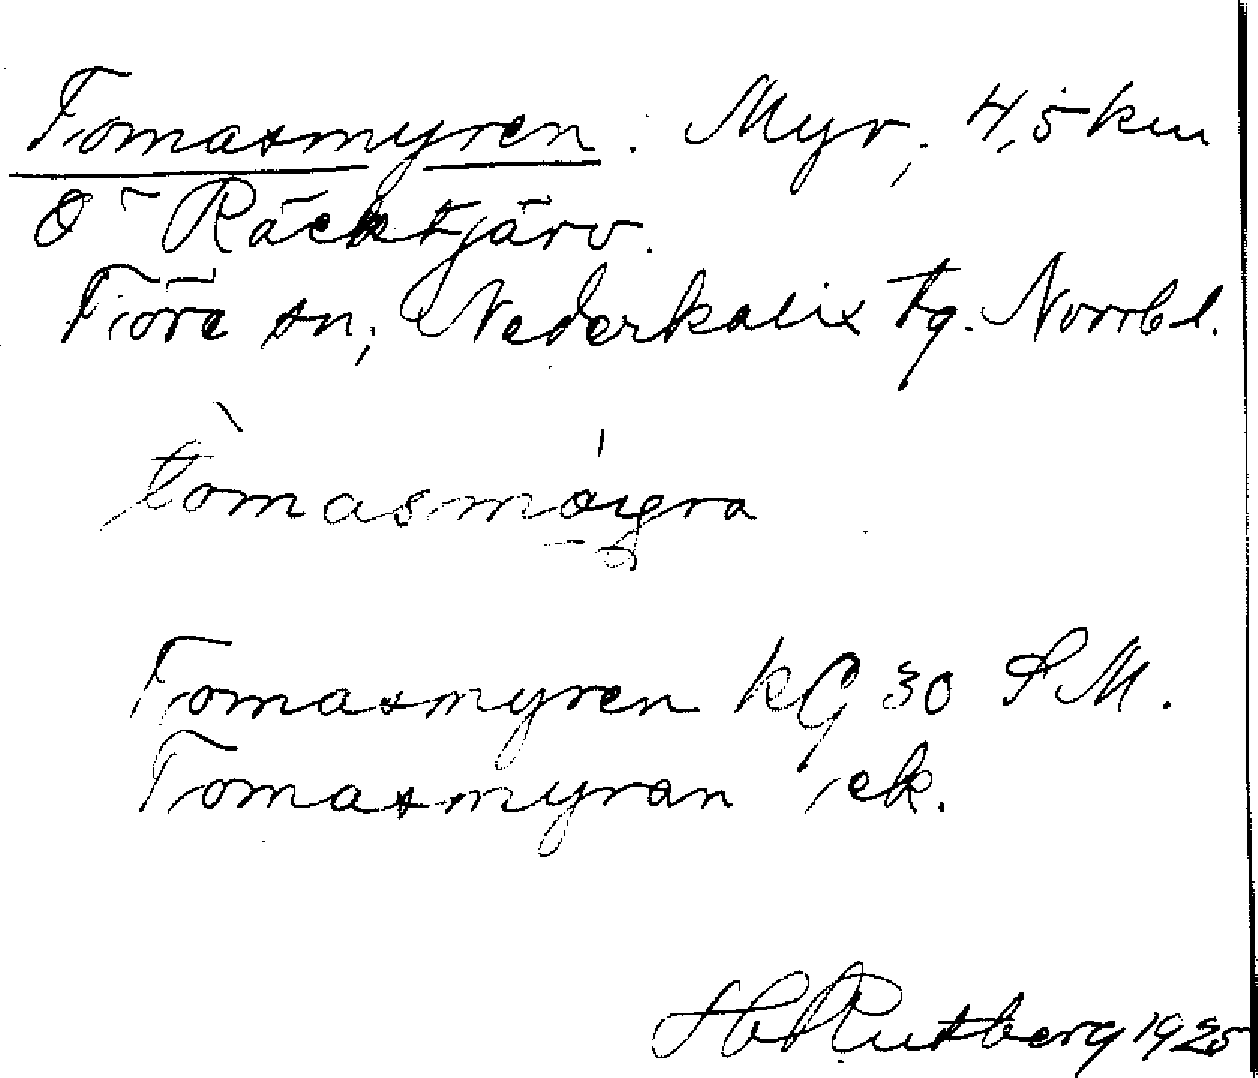 Tomasmyren. Myr, 4,5 km
Ö Räcktjärv.
Töre sn, Nederkalix tg. Norrb l.
Tomasmyren kG 30 SM.
Tomasmyran ek.
H Rutberg 1925